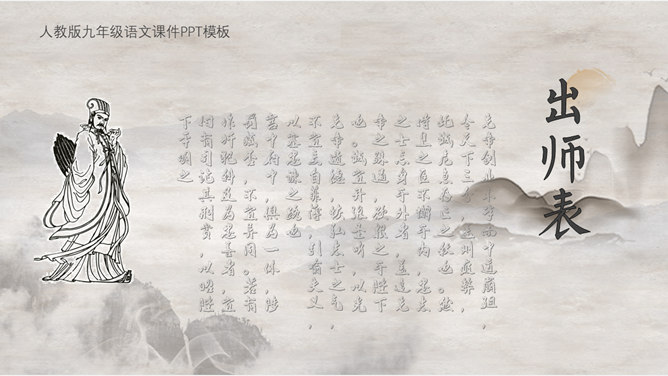 人教版九年级语文课件PPT模板
出师表
先帝创业未半而中道崩殂，
今天下三分，益州疲弊，
此诚危急存亡之秋也。然
侍卫之臣不懈于内，忠志
之士忘身于外者，盖追先
帝之殊遇，欲报之于陛下
也。诚宜开张圣听，以光
先帝遗德，恢弘志士之气，
不宜妄自菲薄，引喻失义，
以塞忠谏之路也
宫中府中，俱为一体，陟
罚臧否，不宜异同。若有
作奸犯科及为忠善者，宜
付有司论其刑赏，以昭陛
下平明之